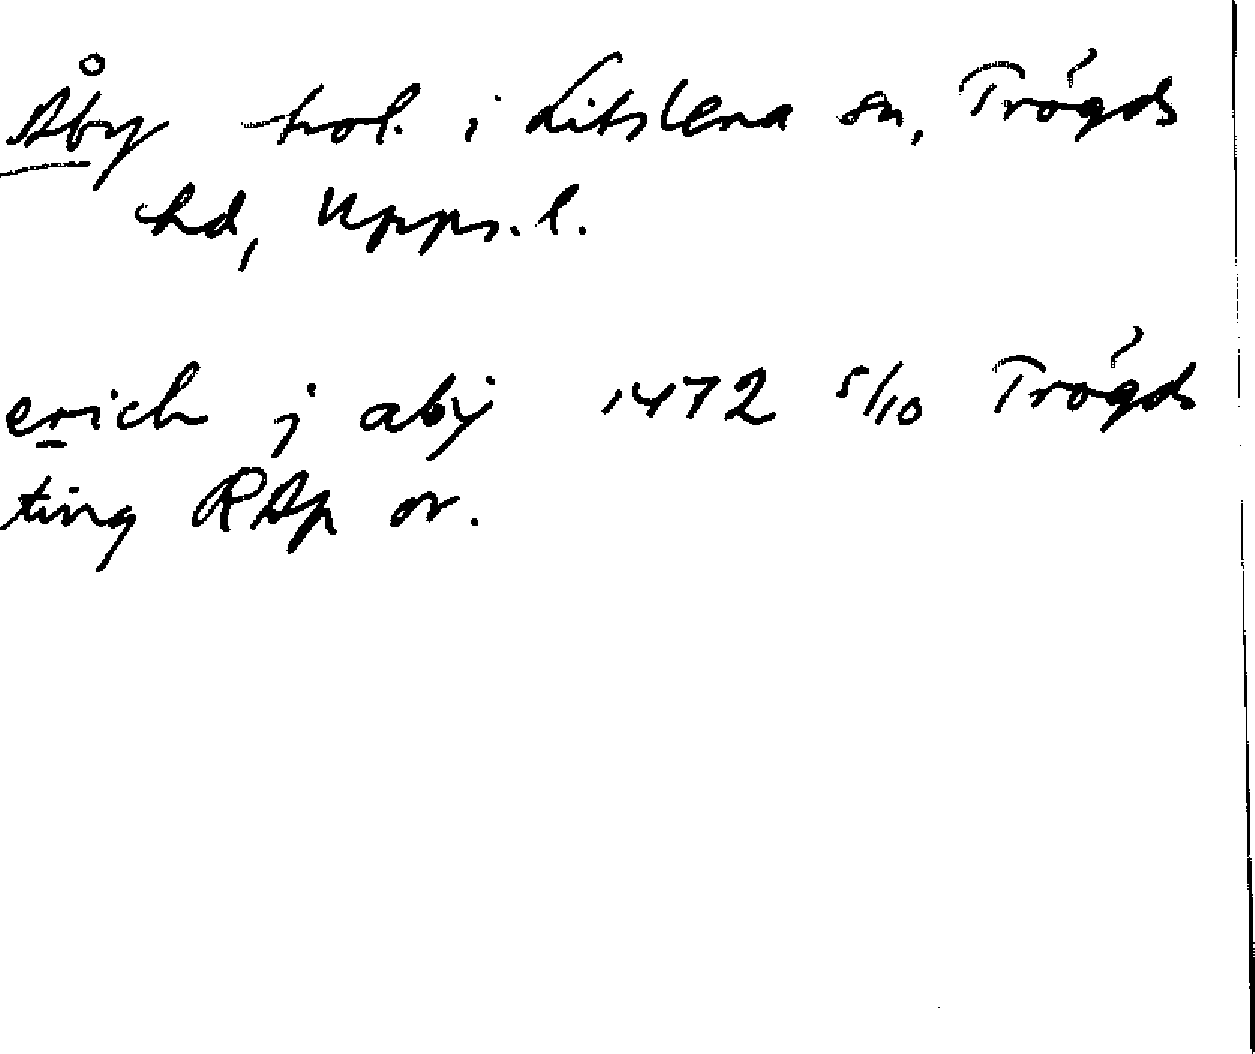 Åby trol. i Litslena sn, Trögds
hd, Upps. l.
erich j aby 1472 5/10 Trögds
ting RAp or.